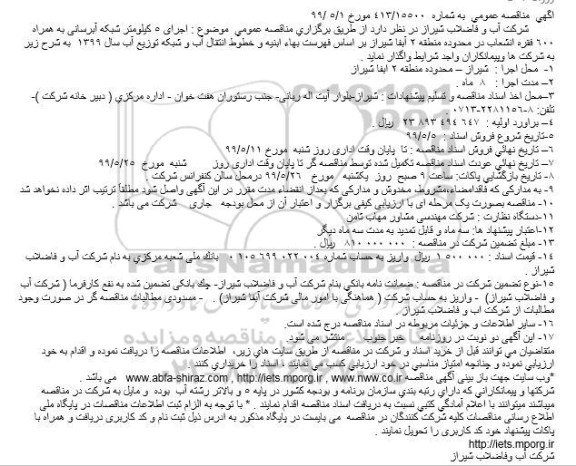 آگهی مناقصه عمومی به شماره ۴۱۳/۱۵۵۰۰ مورخ ۹۹/ ۵/۱
شرکت آب و فاضلاب شیراز در نظر دارد از طریق برگزاري مناقصه عمومي موضوع : اجراي ۵ کیلومتر شبکه آبرسانی به همراه
۶۰۰ فقره انشعاب در محدوده منطقه ۲ آبفا شیراز بر اساس فهرست بهاء ابنیه و خطوط انتقال آب و شبکه توزیع آب سال ۱۳۹۹ به شرح زیر
به شرکت ها وپیمانکاران واجد شرایط واگذار نماید .
۱- محل اجرا : شیراز – محدوده منطقه ۲ ابفا شیراز
۲– مدت اجرا : ۸ ماه .
۳–محل اخذ اسناد مناقصه و تسلیم پیشنهادات : شیراز-بلوار آیت اله ربانی- جنب رستوران هفت خوان - اداره مرکزي ( دبیر خانه شرکت )-
تلفن: ۸-۲۲۸۱۱۵۶-۰۷۱۳
۴– برآورد اولیه : ۶۴۷ ۴۹۴ ۸۹۳ ۲۳ ریال .
۵–تاریخ شروع فروش اسناد : ۹۹/۵/۵
۶– تاریخ نهائي فروش اسناد مناقصه : تا پایان وقت اداری روز شنبه مورخ ۹۹/۵/۱۱
۷– تاریخ نهائي عودت اسناد مناقصه تکمیل شده توسط مناقصه گر تا پایان وقت اداری روز شنبه مورخ ۹۹/۵/۲۵
۸– تاریخ بازگشایي پاکات: ساعت ۹ صبح روز یکشنبه مورخ ۹۹/۵/۲۶ درمحل سالن کنفرانس شرکت .
۹- به مدارکی که فاقدامضاء،مشروط، مخدوش و مدارکی که بعداز انقضاء مدت مقرر در این آگهی واصل شود مطلقاً ترتیب اثر داده نخواهد شد
۱۰- مناقصه بصورت یک مرحله ای با ارزیابی کیفی برگزار و اعتبار آن از محل بودجه جاری شرکت می باشد .
۱۱-دستگاه نظارت : شرکت مهندسی مشاور مهاب ثامن
۱۲-اعتبار پیشنهاد ها: سه ماه و قابل تمدید به مدت سه ماه دیگر
۱۳- مبلغ تضمین شرکت در مناقصه : ۸۱۰ ۰۰۰ ۰۰۰ ریال .
۱۴- قیمت اسناد : ۱ ۵۰۰ ۰۰۰ ریال واریز به حساب شماره ۰۱۰۵۶۹۹۰۲۲۰۰۴ بانك ملي شعبه مرکزي به نام شرکت آب و فاضلاب
شیراز .
۱۵-نوع تضمین شرکت در مناقصه : ضمانت نامه بانکی بنام شرکت آب و فاضلاب شیراز- چك بانکی تضمین شده به نفع کارفرما ( شرکت آب
و فاضلاب شیراز) - واریز به حساب شرکت ( هماهنگی با امور مالی شرکت آبفا شیراز) . - مسدودی مطالبات مناقصه گر در صورت وجود
مطالبات از شرکت آب و فاضلاب شیراز .
۱۶– سایر اطلاعات و جزئیات مربوطه در اسناد مناقصه درج شده است.
۱۷- این آگهی دو نوبت در روزنامه خبر جنوب منتشر می شود.
متقاضیان می توانند قبل از خرید اسناد و شرکت در مناقصه از طریق سایت های زیر، اطلاعات مناقصه را دریافت نموده و اقدام به خود
ارزیابی نموده و چنانچه امتیاز مناسبی در خود ارزیابی کسب می نمایند ، اسناد را خریداری کنند.
*وب سایت جهت باز بینی آگهی مناقصه www.abfa-shiraz.com , http://iets.mporg.ir , www.nww.co.ir می باشد .
شرکتها و پیمانکارانی که دارای رتبه بندی سازمان برنامه و بودجه کشور در پایه ۵ و بالاتر رشته آب بوده و مایل به شرکت در مناقصه
میباشند میتوانند با اعلام آمادگی کتبی نسبت به دریافت اسناد مناقصه اقدام نمایند . * با توجه به الزام ثبت اطلاعات مناقصات در پایگاه ملی
اطلاع رسانی مناقصات کلیه شرکت کنندگان در مناقصه می بایست در پایگاه مذکور به آدرس ذیل ثبت نام و کد کاربری دریافت و همراه با
پاکات پیشنهاد خود کد کاربری را تحویل نمایند .
http://iets.mporg.ir
شرکت آب وفاضلاب شیراز